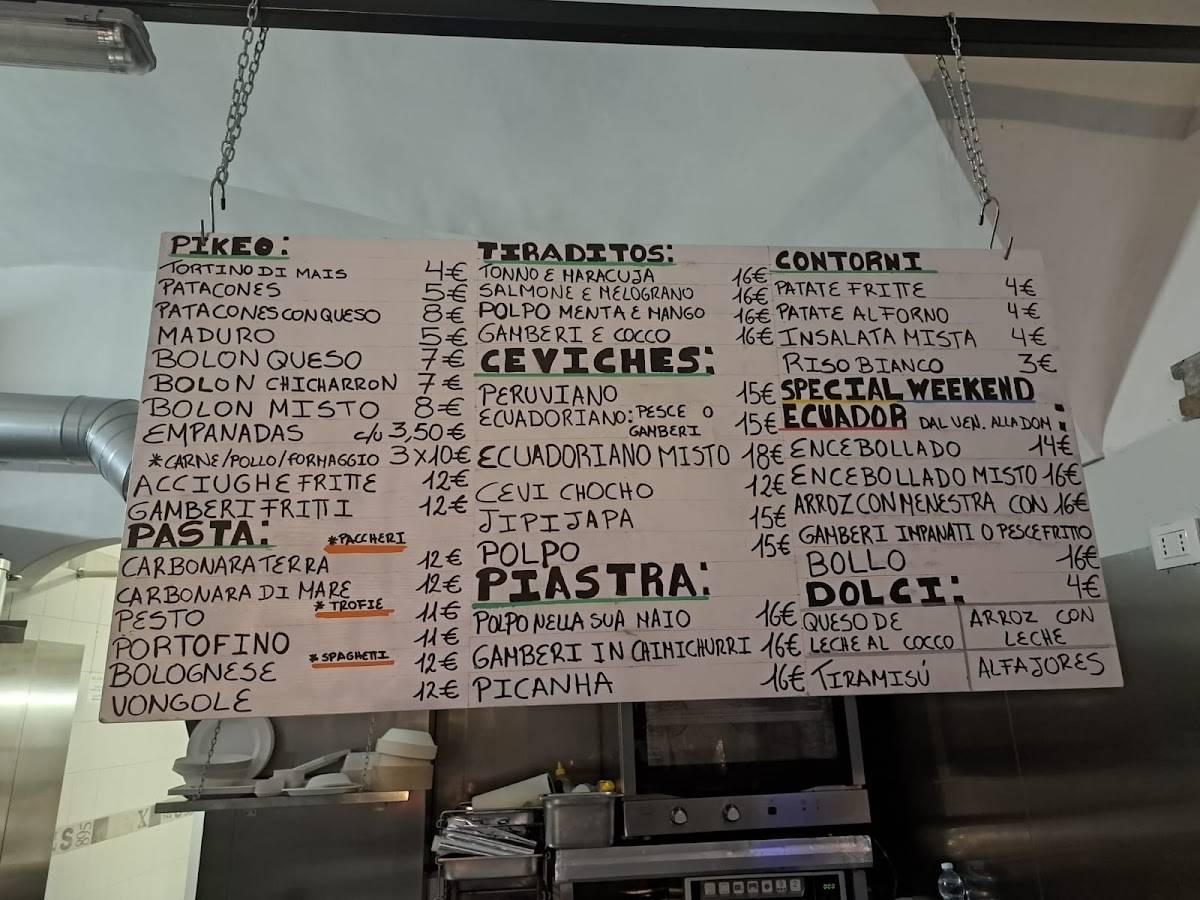 PIKEO:
TORTINO DI MAIS 4€
PATACONES 5€
PATACONES CON QUESO 8€
MADURO 5€
BOLON QUESO 7€
BOLON CHICHARRON 7€
BOLON MISTO 8€
EMPANADAS c/u 3,50€
*CARNE/POLLO/FORMAGGIO 3x10€
ACCIUGHE FRITTE 12€
GAMBERI FRITTI 12€
PASTA: *PACCHERI
CARBONARA TERRA 12€
CARBONARA DI MARE 12€
PESTO *TROFIE 11€
PORTOFINO 11€
BOLOGNESE *SPAGHETTI 12€
VONGOLE 12€
TIRADITOS:
TONNO E MARACUJA 16€
SALMONE E MELOGRANO 16€
POLPO MENTA E MANGO 16€
GAMBERI E COCCO 16€
CEVICHES:
PERUVIANO 15€
ECUADORIANO: PESCE O
GAMBERI 15€
ECUADORIANO MISTO 18€
CEVI CHOCHO 12€
JIPIJAPA 15€
POLPO 15€
PIASTRA:
POLPO NELLA SUA NAIO 16€
GAMBERI IN CHIMICHURRI 16€
PICANHA 16€
CONTORNI
PATATE FRITTE 4€
PATATE AL FORNO 4€
INSALATA MISTA 4€
RISO BIANCO 3€
SPECIAL WEEKEND
ECUADOR DAL VEN. ALLA DOM:
ENCEBOLLADO 14€
ENCEBOLLADO MISTO 16€
ARROZ CON MENESTRA CON 16€
GAMBERI IMPANATI O PESCE FRITTO
BOLLO 16€
DOLCI: 4€
QUESO DE
LECHE AL COCCO
TIRAMISÚ
ARROZ CON
LECHE
ALFAJORES